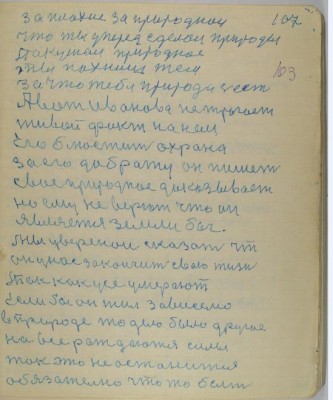 за плохие за природной 107
что ты уперед сделал природы
такупкой природное
Ты похниш тем 103
за что тебя природа
А вот Иванова не трогает
живой факт на нём
Его блюстит охрана
За его доброту он пишет
Свое природное доказывает
но ему не верют что он
является земли бог.
Мы уверенои сказат чт
он у нас закончит свою жизн
Так как усе умерают
Если бог он жил зависемо
в природе то дело было другое
на все рождаются силы
так это не останится
обязателно что то болт